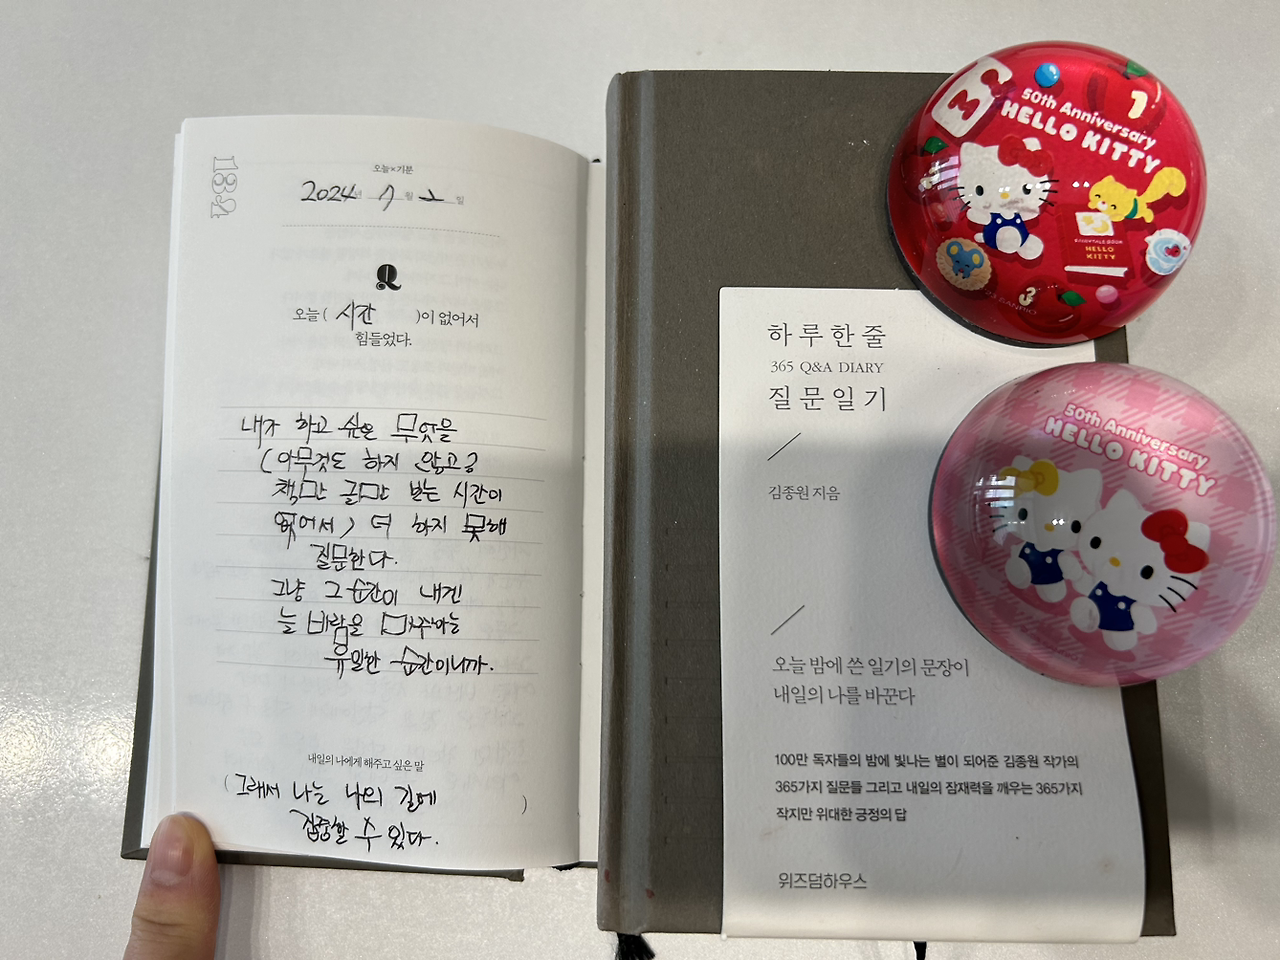 184
오늘×기분
2024년 7월 2일
Q
오늘 ( 시간 )이 없어서
힘들었다.
내가 하고 싶은 무엇을
(아무것도 하지 않고
책만 글만 보는 시간이
없어서) 더 하지 못해
질문한다.
그냥 그 순간이 내겐
늘 바람을
유일한 순간이니까.
내일의 나에게 해주고 싶은 말
( 그래서 나는 나의 길에
집중할 수 있다. )
하루 한 줄
365 Q&A DIARY
질문 일기
김종원 지음
오늘 밤에 쓴 일기의 문장이
내일의 나를 바꾼다
100만 독자들의 밤에 빛나는 별이 되어준 김종원 작가의
365가지 질문들 그리고 내일의 잠재력을 깨우는 365가지
작지만 위대한 긍정의 답
위즈덤하우스
1
50th Anniversary
HELLO KITTY
FAIRYTALE BOOK
HELLO
KITTY
3
50th Anniversary
HELLO KITTY